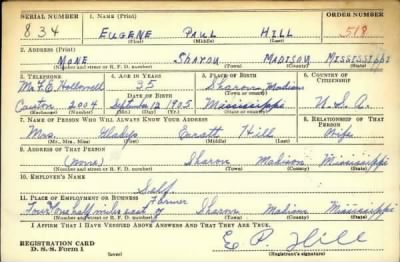 SERIAL NUMBER 1. NAME (Print) ORDER NUMBER
834 EUGENE PAUL HILL 518
(First) (Middle) (Last)
2. ADDRESS (Print)
NONE SHARON MADISON MISSISSIPPI
(Number and street or R. F. D. number) (Town) (County) (State)
3. TELEPHONE 4. AGE IN YEARS 5. PLACE OF BIRTH 6. COUNTRY OF CITIZENSHIP
Mr. F. E. Hollowell 35 Sharon Madison
DATE OF BIRTH
Canton 2004 September 12 1905 Mississippi U. S. A.
(Exchange) (Number) (Mo.) (Day) (Yr.) (State or country)
7. NAME OF PERSON WHO WILL ALWAYS KNOW YOUR ADDRESS 8. RELATIONSHIP OF THAT PERSON
Mrs. Gladys Hill Wife
(Mr., Mrs., Miss) (First) (Middle) (Last)
9. ADDRESS OF THAT PERSON
(None) Sharon Madison Mississippi
(Number and street or R. F. D. number) (Town) (County) (State)
10. EMPLOYER'S NAME
Self
11. PLACE OF EMPLOYMENT OR BUSINESS Farmer
Four & one half miles east of Sharon Madison Mississippi
(Number and street or R. F. D. number) (Town) (County) (State)
I AFFIRM THAT I HAVE VERIFIED ABOVE ANSWERS AND THAT THEY ARE TRUE.
REGISTRATION CARD
D. S. S. Form 1
E P. Hill
(Registrant's signature)